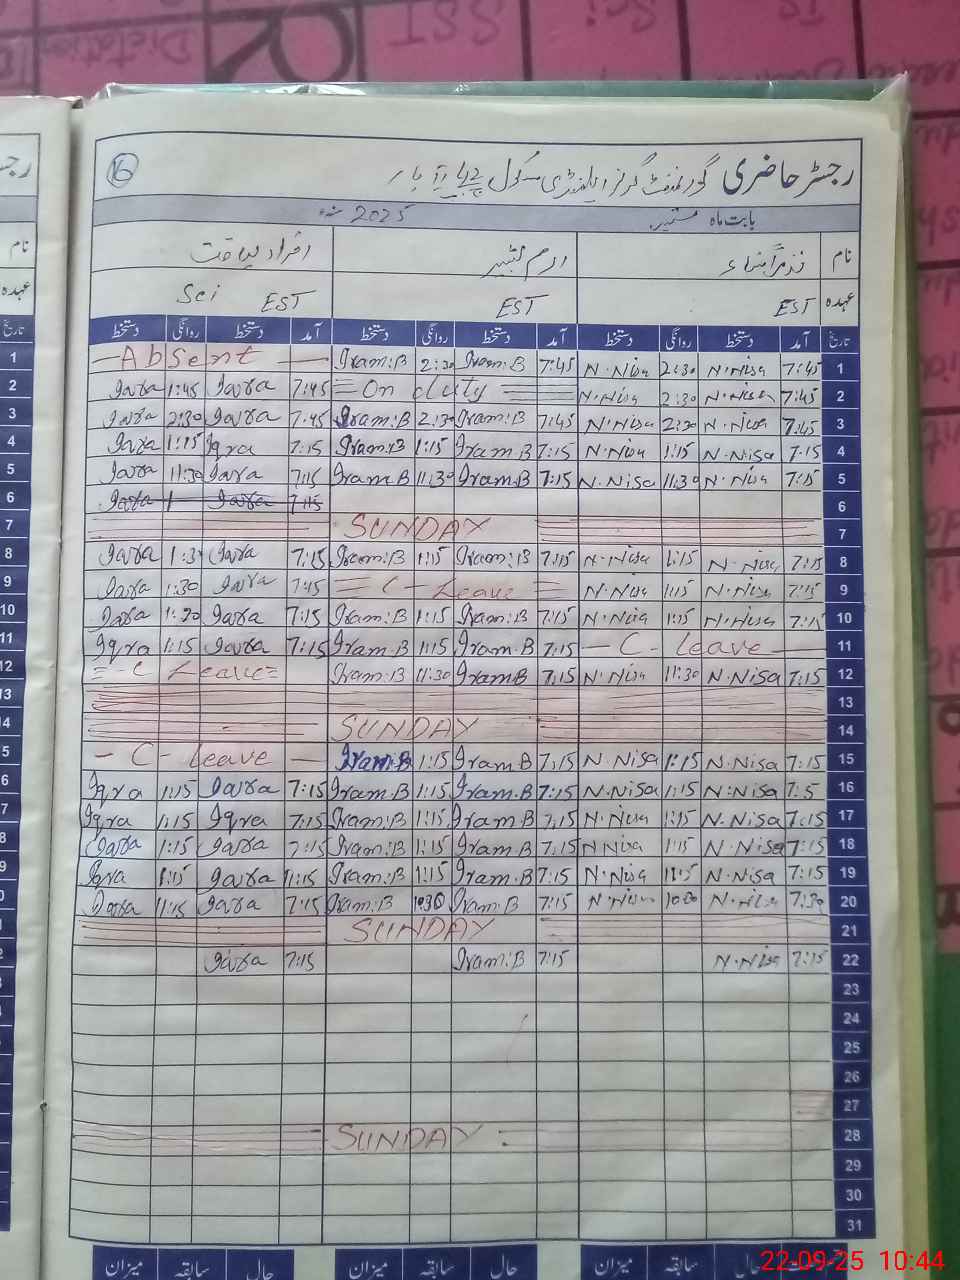 رجسٹر حاضری گورنمنٹ گرلز ایلمنٹری سکول
16
بابت ماہ ستمبر 2025ء
نام
عہدہ EST EST EST Sci
تاریخ آمد دستخط روانگی دستخط آمد دستخط روانگی دستخط آمد دستخط روانگی دستخط
1 7:45 N.Nisa 2:30 N.Nisa 7:45 Iram:B 2:30 Iram:B — Absent —
2 7:45 N.Nisa 2:30 N.Nisa = On duty = 7:45 Iqra 1:45 Iqra
3 7:45 N.Nisa 2:30 N.Nisa 7:45 Iram:B 2:30 Iram:B 7:45 Iqra 2:30 Iqra
4 7:15 N.Nisa 1:15 N.Nisa 7:15 Iram.B 1:15 Iram:B 7:15 Iqra 1:15 Iqra
5 7:15 N.Nisa 11:30 N.Nisa 7:15 Iram.B 11:30 Iram.B 7:15 Iqra 11:30 Iqra
6 7:15 Iqra 1 Iqra
7 SUNDAY
8 7:15 N.Nisa 1:15 N.Nisa 7:15 Iram:B 1:15 Iram:B 7:15 Iqra 1:3 Iqra
9 7:15 N.Nisa 1:15 N.Nisa = C - Leave = 7:45 Iqra 1:30 Iqra
10 7:15 N.Nisa 1:15 N.Nisa 7:15 Iram:B 1:15 Iram:B 7:15 Iqra 1:30 Iqra
11 — C- Leave — 7:15 Iram.B 1:15 Iram.B 7:15 Iqra 1:15 Iqra
12 7:15 N.Nisa 11:30 N.Nisa 7:15 Iram.B 11:30 Iram:B = - C Leave =
13
14 SUNDAY
15 7:15 N.Nisa 1:15 N.Nisa 7:15 Iram.B 1:15 Iram:B — C - Leave —
16 7:5 N.Nisa 1:15 N.Nisa 7:15 Iram.B 1:15 Iram.B 7:15 Iqra 1:15 Iqra
17 7:15 N.Nisa 1:15 N.Nisa 7:15 Iram.B 1:15 Iram:B 7:15 Iqra 1:15 Iqra
18 7:15 N.Nisa 1:15 N Nisa 7:15 Iram.B 1:15 Iram:B 7:15 Iqra 1:15 Iqra
19 7:15 N.Nisa 1:15 N.Nisa 7:15 Iram.B 1:15 Iram:B 1:15 Iqra 1:15 Iqra
20 7:30 N.Nisa 10:30 N.Nisa 7:15 Iram:B 10:30 Iram:B 7:15 Iqra 11:15 Iqra
21 SUNDAY
22 7:15 N.Nisa 7:15 Iram:B 7:15 Iqra
23
24
25
26
27
28 SUNDAY
29
30
31
حال سابقہ میزان حال سابقہ میزان
22-09-25 10:44